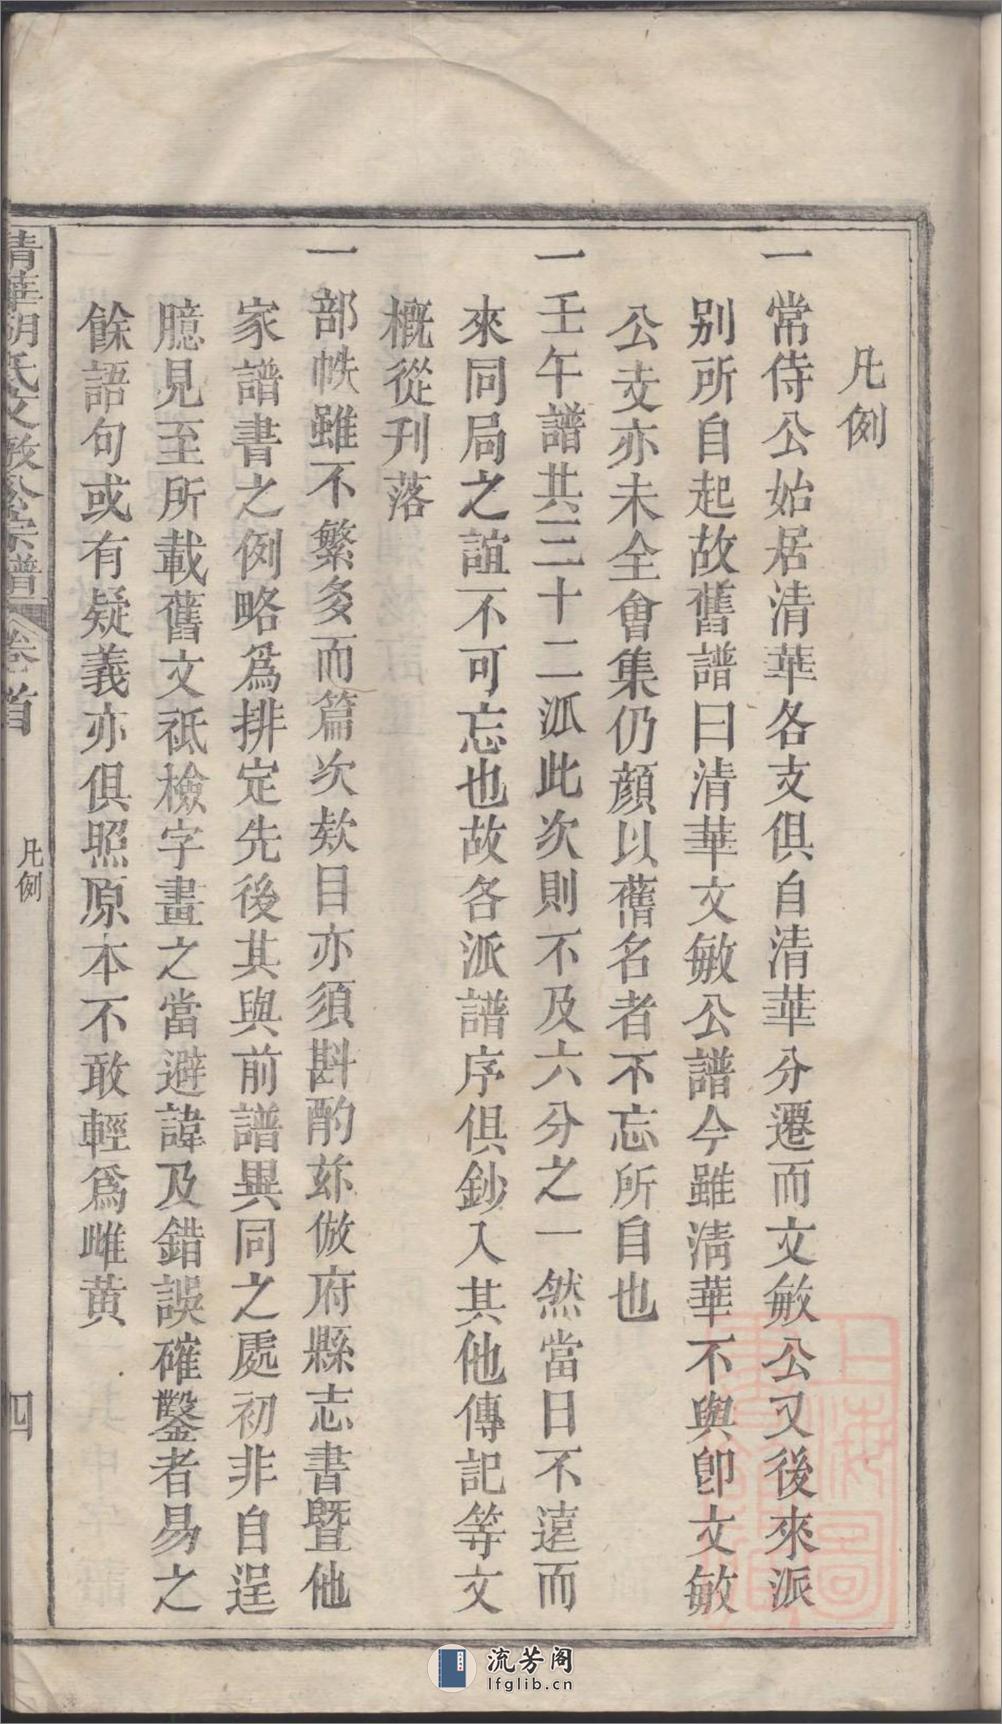 凡例
一常侍公始居清華各支俱自清華分遷而文敏公又後來派
別所自起故舊譜曰清華文敏公譜今雖淸華不與卽文敏
公支亦未全會集仍顏以舊名者不忘所自也
一壬午譜共三十二派此次則不及六分之一然當日不遠而
來同局之誼不可忘也故各派譜序俱鈔入其他傳記等文
槪從刋落
一部帙雖不繁多而篇次欵目亦須斟酌茲倣府縣志書曁他
家譜書之例略爲排定先後其與前譜異同之處初非自逞
臆見至所載舊文祗檢字畫之當避諱及錯誤確鑿者易之
餘語句或有疑義亦俱照原本不敢輕爲雌黃
清華胡氏文敏公宗譜 卷首 凡例 四
上海圖書館藏
流芳阁
lfglib.cn